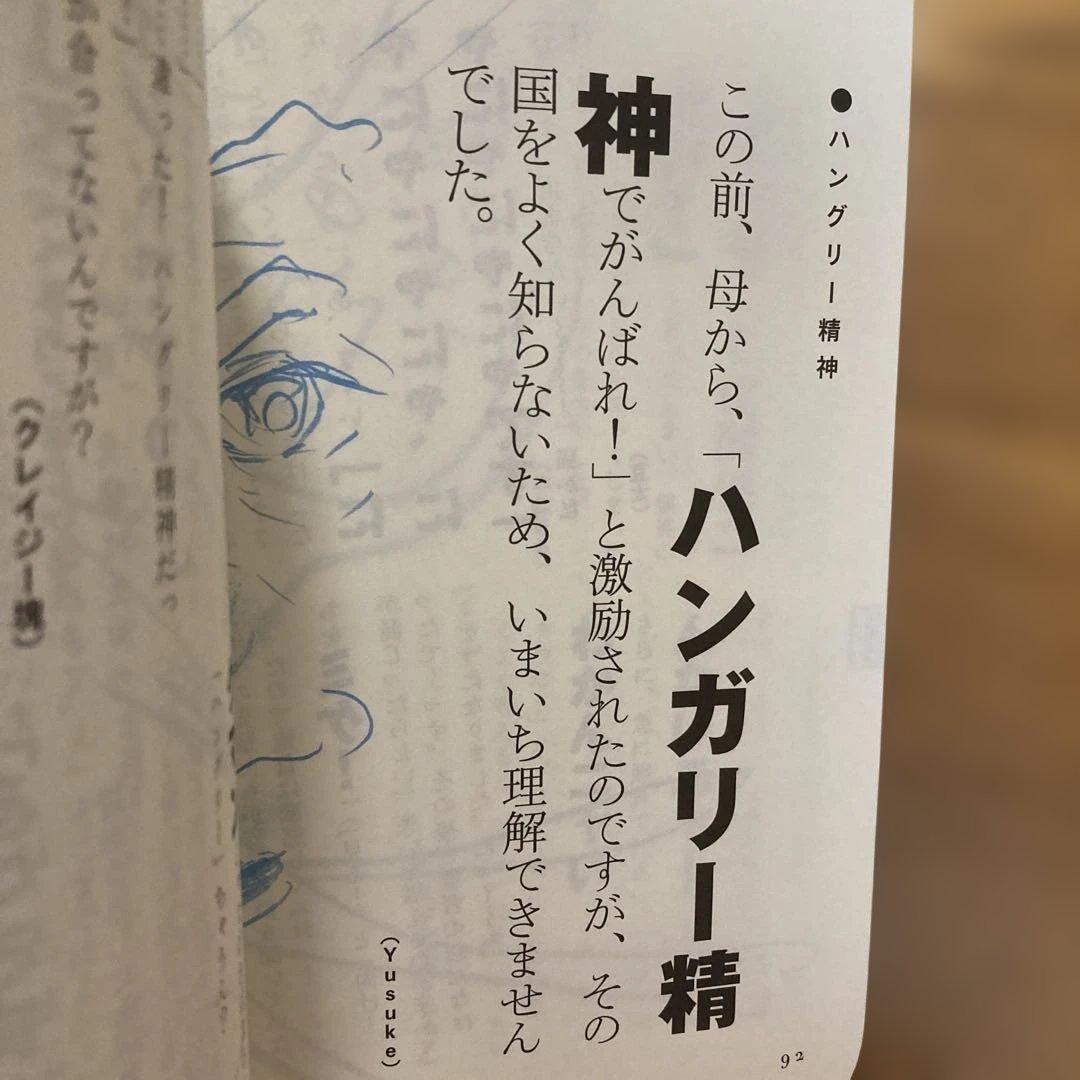 ●ハングリー精神
この前、母から、「ハンガリー精
神でがんばれ！」と激励されたのですが、その
国をよく知らないため、いまいち理解できません
でした。
(Yusuke)
92
ってないんですが？
(クレイジー塊)